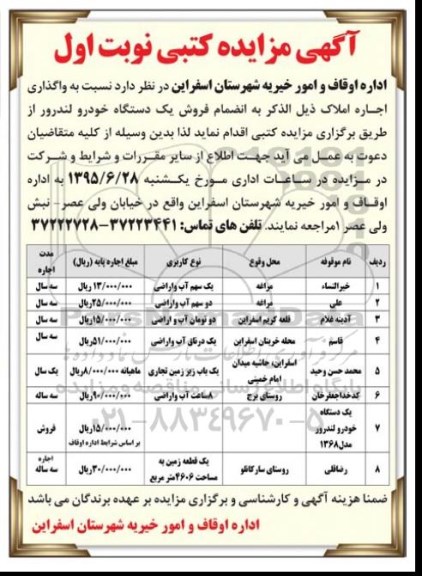 آگهی مزایده کتبی نوبت اول
اداره اوقاف و امور خیریه شهرستان اسفراین در نظر دارد نسبت به واگذاری
اجاره املاک ذیل الذکر به انضمام فروش یک دستگاه خودرو لندرور از
طریق برگزاری مزایده کتبی اقدام نماید لذا بدین وسیله از کلیه متقاضیان
دعوت به عمل می آید جهت اطلاع از سایر مقررات و شرایط و شرکت
در مزایده در ساعات اداری مورخ یکشنبه ۱۳۹۵/۶/۲۸ به اداره
اوقاف و امور خیریه شهرستان اسفراین واقع در خیابان ولی عصر- نبش
ولی عصر ۱مراجعه نمایند. تلفن های تماس: ۳۷۲۲۳۴۴۱-۳۷۲۲۲۷۲۸
ردیف نام موقوفه محل وقوع نوع کاربری مبلغ اجاره پایه (ریال) مدت اجاره
۱ خیرالنساء مزاغه یک سهم آب واراضی ۱۳/۰۰۰/۰۰۰ریال سه سال
۲ علی مزاغه دو سهم آب واراضی ۲۵/۰۰۰/۰۰۰ریال سه سال
۳ آدینه غلام قلعه کریم اسفراین دو تومان آب و اراضی ۱۵/۰۰۰/۰۰۰ریال سه سال
۴ قاسم محله خرینان اسفراین یک درتای آب واراضی ۵۱/۰۰۰/۰۰۰ریال سه سال
۵ محمد حسن وحید اسفراین، حاشیه میدان امام خمینی یک باب زیر زمین تجاری ماهیانه ۸/۰۰۰/۰۰۰ریال یک سال
۶ کدخداجعفرخان روستای برج ۸ساعت آب واراضی ۹۰/۰۰۰/۰۰۰ریال سه ساله
۷ یک دستگاه خودرو لندرور مدل۱۳۶۸ ۱۵/۰۰۰/۰۰۰ریال بر اساس شرایط اداره اوقاف فروش
۸ رضاقلی روستای سارکانلو یک قطعه زمین به مساحت ۴۶۰۶متر مربع ۳۰/۰۰۰/۰۰۰ریال اجاره سه ساله
ضمنا هزینه آگهی و کارشناسی و برگزاری مزایده بر عهده برندگان می باشد
اداره اوقاف و امور خیریه شهرستان اسفراین
۰۲۱-۸۸۳۴۹۶۷۰-۵